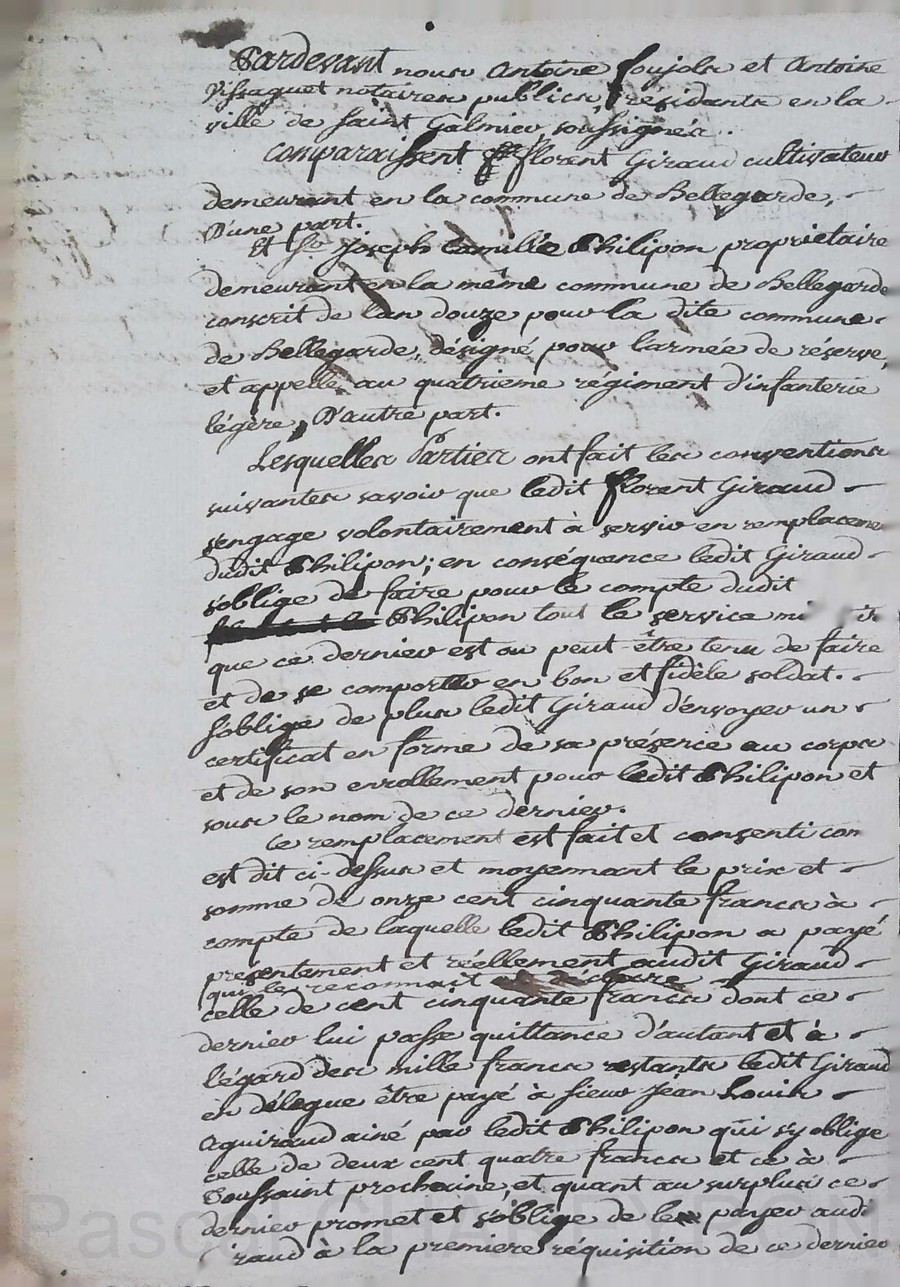 Pardevant nous Antoine Poujols et Antoine
Vissaguet notaires publics, résidants en la
ville de Saint Galmier, soussignés.
Comparaissent Sr florent Giraud cultivateur
demeurant en la commune de Bellegarde,
D'une part.
Et Sr. Joseph Camille Philipon propriétaire
demeurant en la même commune de Bellegarde
conscrit de l'an douze pour la dite commune
de Bellegarde, désigné pour l'armée de réserve,
et appellé au quatrieme régiment d'infanterie
légère, D'autre part.
Lesquelles Parties ont fait les conventions
suivantes savoir que ledit florent Giraud
s'engage volontairement à servir en remplaceme
dudit Philipon; en conséquence ledit Giraud
s'oblige de faire pour le compte dudit
Philipon tout le service mi
que ce dernier est ou peut-être tenu de faire
et de se comporter en bon et fidèle soldat.
S'oblige de plus ledit Giraud d'envoyer un
certificat en forme de sa présence au corps
et de son enrollement pour ledit Philipon et
sous le nom de ce dernier.
Ce remplacement est fait et consenti com
est dit ci-dessus et moyennant le prix et
somme de onze cent cinquante francs à
compte de laquelle ledit Philipon a payé
présentement et réellement audit Giraud
qui le reconnait et déclare
celle de cent cinquante francs dont ce
dernier lui passe quittance d'autant et à
l'égard des mille francs restants ledit Giraud
en délegue être payé à sieur Jean Louis
Aguiraud ainé par ledit Philipon qui s'y oblige
celle de deux cent quatre francs et ce à
Toussaint prochaine, et quant au surplus ce
dernier promet et s'oblige de le payer audi
iraud à la premiere réquisition de ce dernier